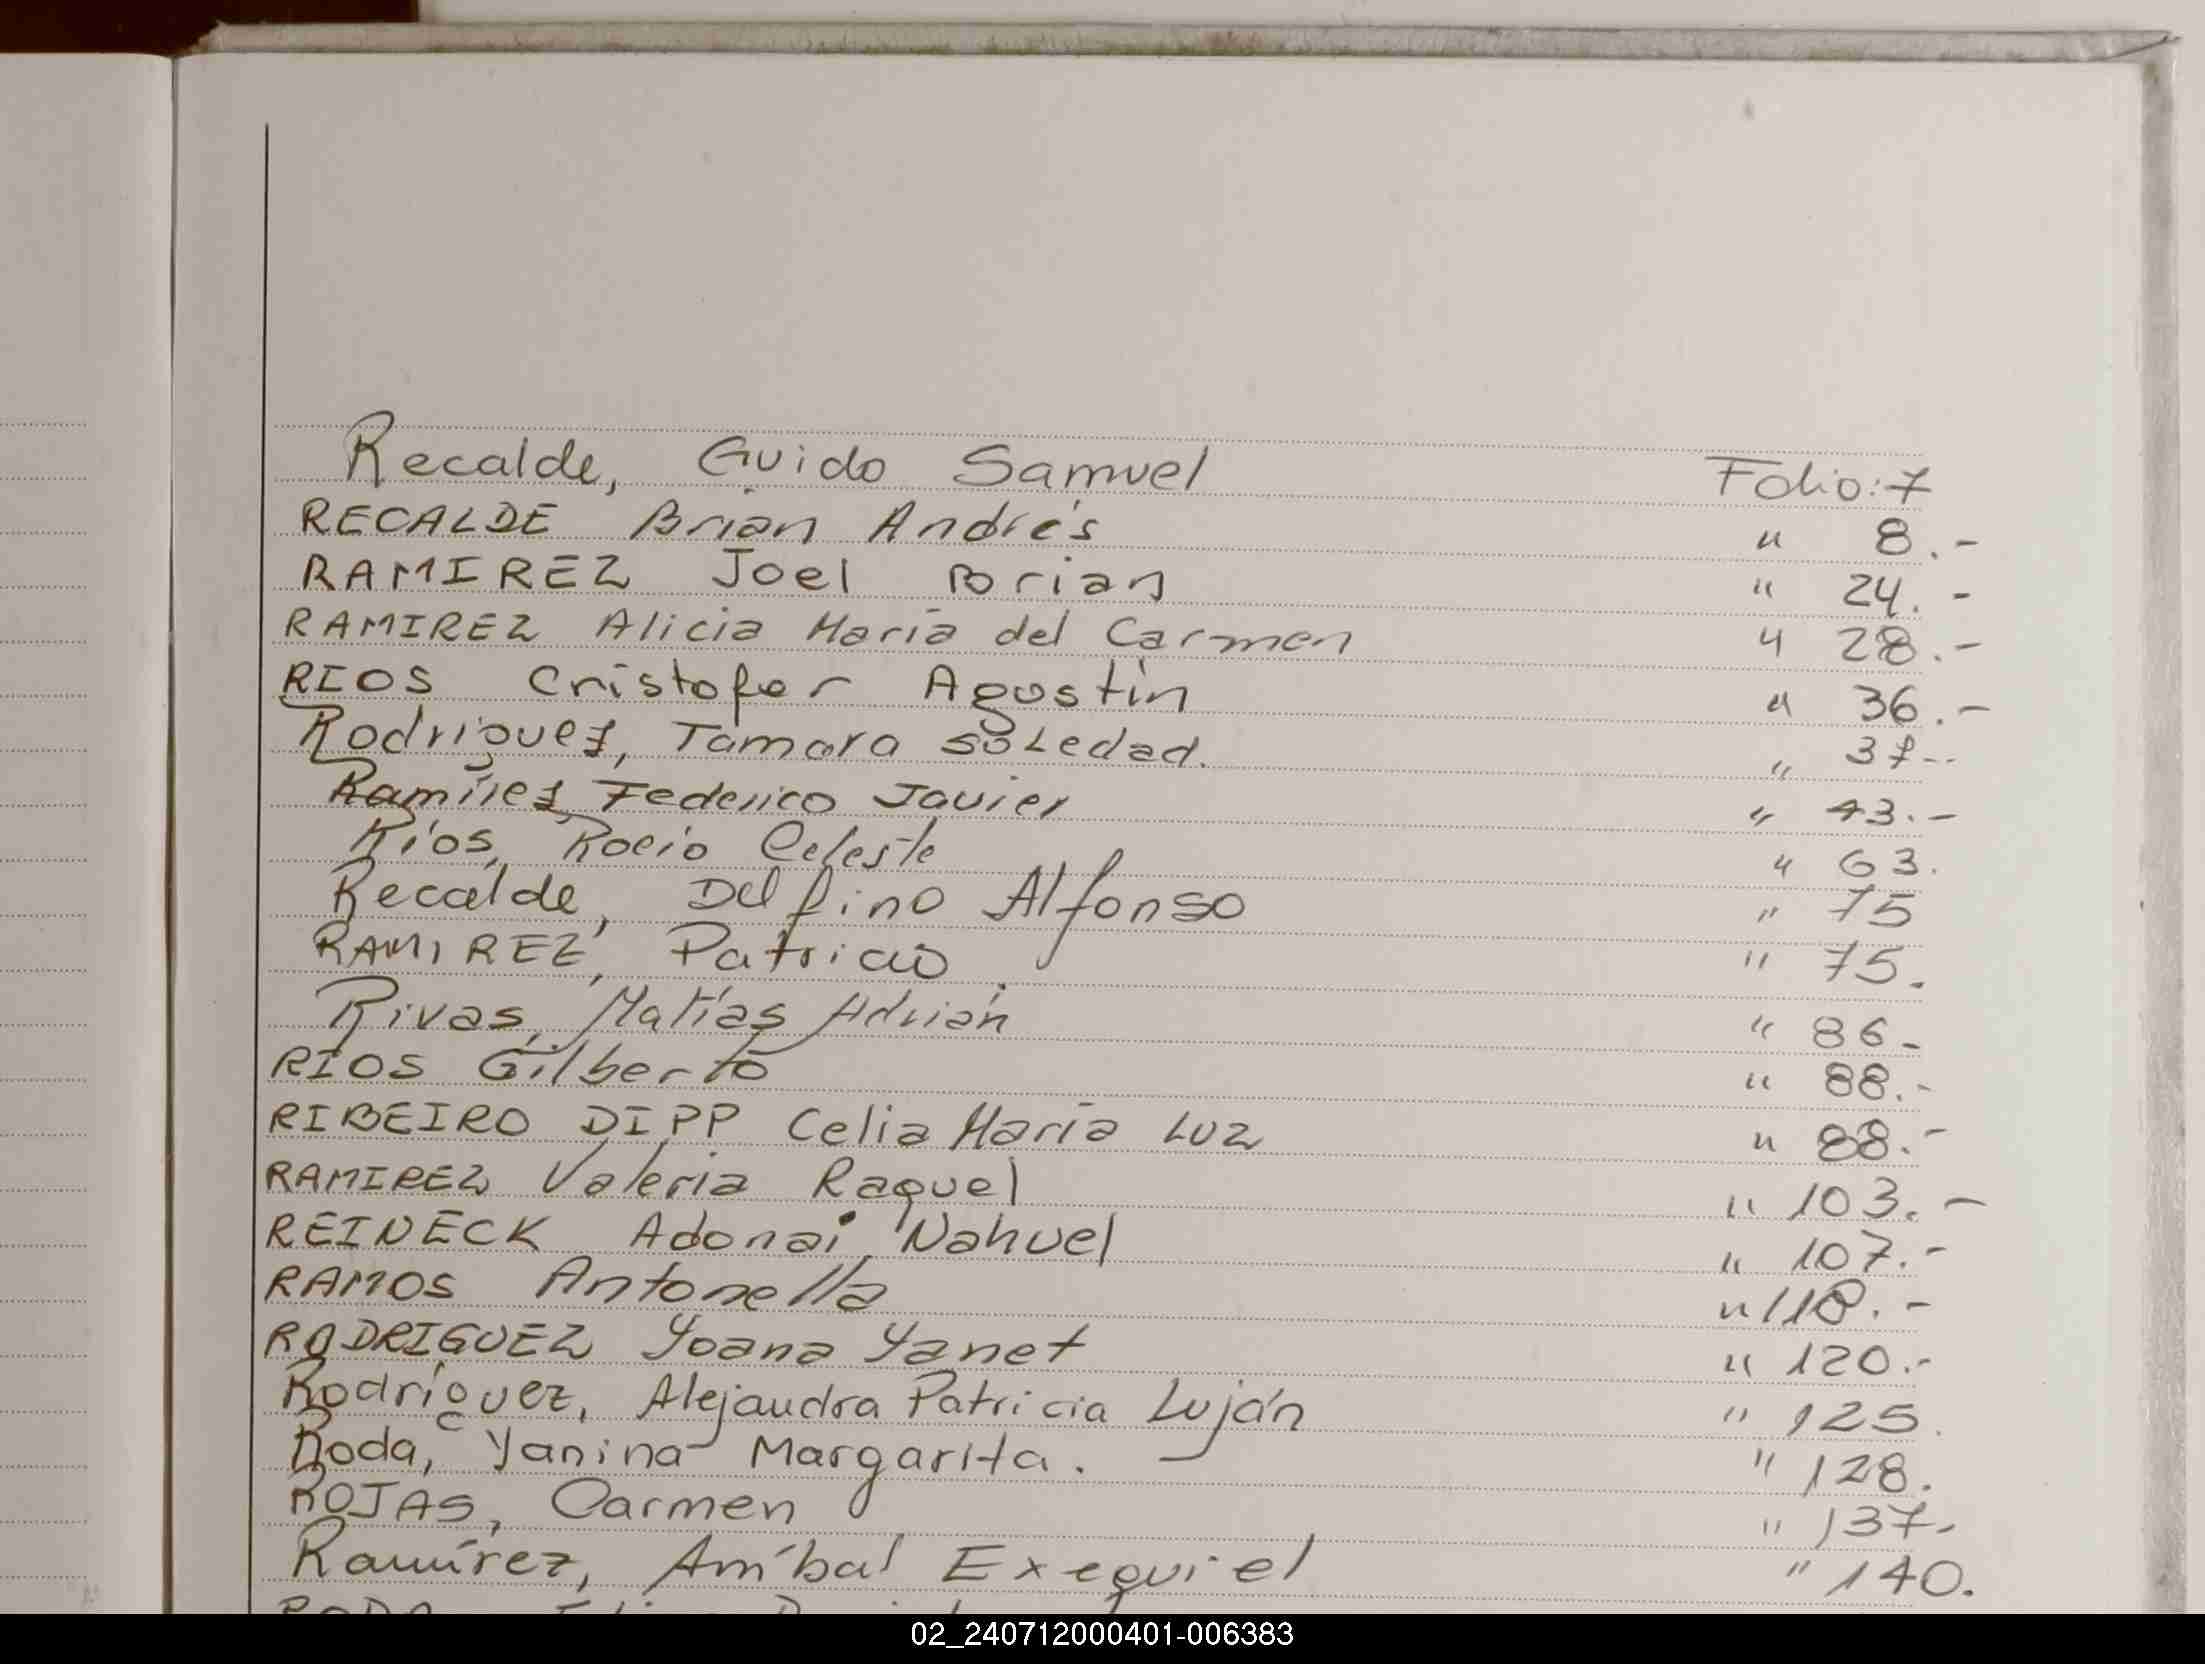 Recalde, Guido Samuel Folio: 7
RECALDE Brian Andrés " 8.-
RAMIREZ Joel Brian " 24.-
RAMIREZ Alicia María del Carmen " 28.-
RIOS Cristofer Agustín " 36.-
Rodriguez, Tamara Soledad. " 37--
Ramírez, Federico Javier " 43.-
Ríos, Rocío Celeste " 63.
Recalde, Delfino Alfonso " 75
RAMIREZ, Patricio " 75.
Rivas, Matías Adrián " 86-
RIOS Gilberto " 88.-
RIBEIRO DIPP Celia María Luz " 88.-
RAMIREZ Valeria Raquel " 103.-
REINECK Adonai Nahuel " 107.-
RAMOS Antonella " 118.-
RODRIGUEZ Yoana Yanet " 120.-
Rodríguez, Alejandra Patricia Luján " 125.
Roda, Yanina Margarita. " 128.
ROJAS, Carmen " 137-
Ramírez, Aníbal Exequiel " 140.
02_240712000401-006383